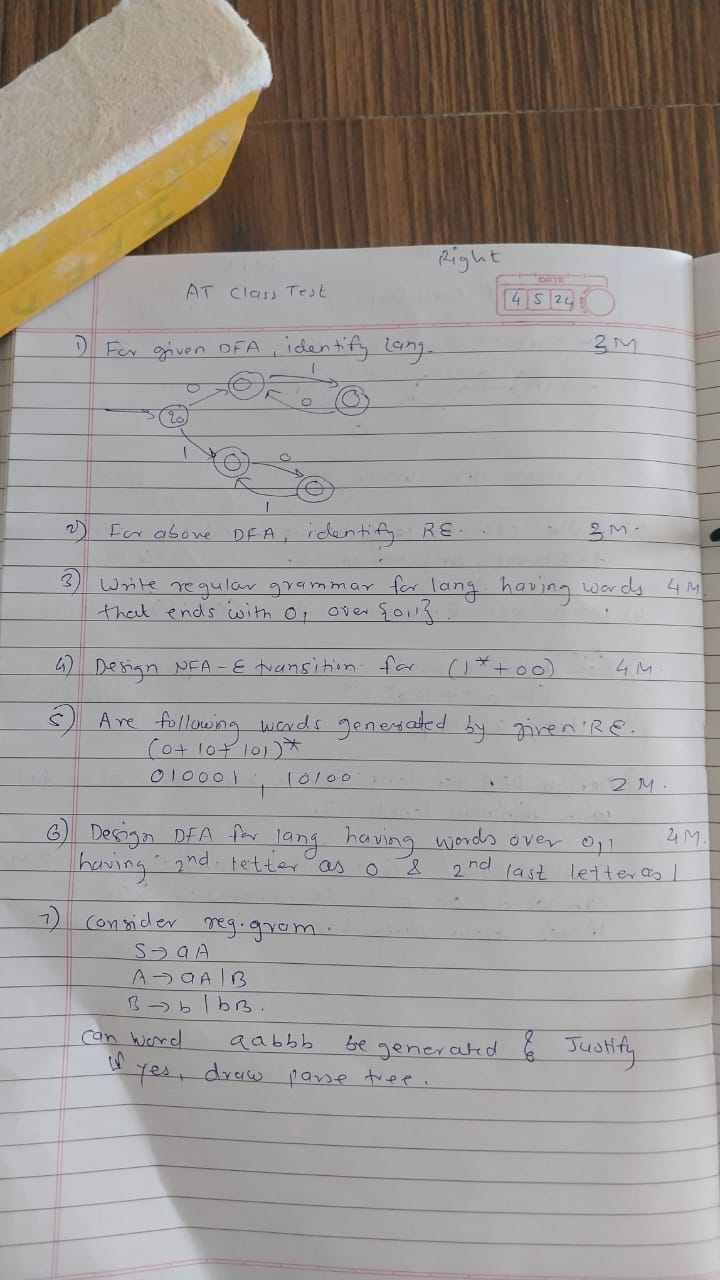 Right
AT Class Test
DATE
4 5 24
1) For given DFA, identify lang. 3M
0 1
q0 0
1 0
1
2) For above DFA, identify RE. 3M.
3) Write regular grammar for lang. having words 4M.
that ends with 0, over {0,1}.
4) Design NFA-ε transition for (1*+00) 4M.
5) Are following words generated by given RE.
(0+10+101)*
010001, 10100 2M.
6) Design DFA for lang having words over 0,1 4M.
having 2nd letter as 0 & 2nd last letter as 1
7) Consider reg. gram.
S→aA
A→aA|B
B→b|bB.
can word aabbb be generated & Justify
if yes, draw parse tree.